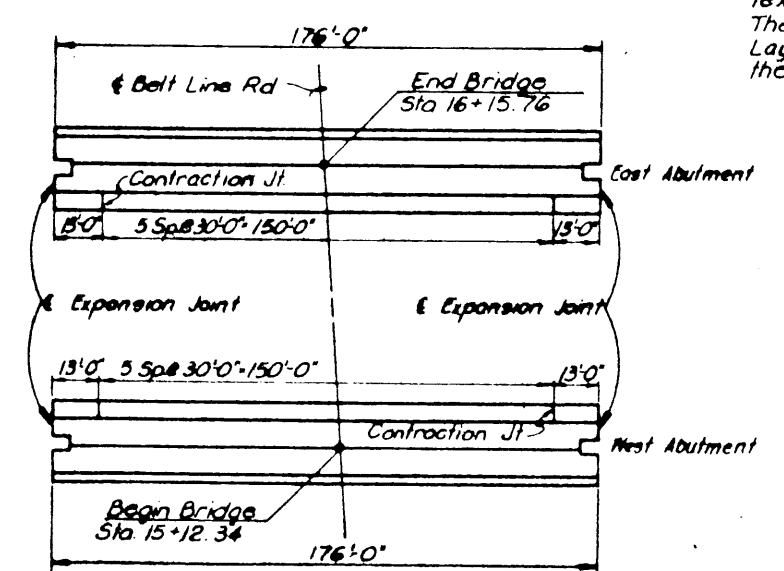 176'-0"
℄ Belt Line Rd
End Bridge
Sta 16+15.76
The
Lay
the
East Abutment
Contraction Jt.
13'-0"
5 Sp.@ 30'-0"=150'-0"
13'-0"
℄ Expansion Joint
℄ Expansion Joint
13'-0"
5 Sp.@ 30'-0"=150'-0"
13'-0"
Contraction Jt.
West Abutment
Begin Bridge
Sta. 15+12.34
176'-0"